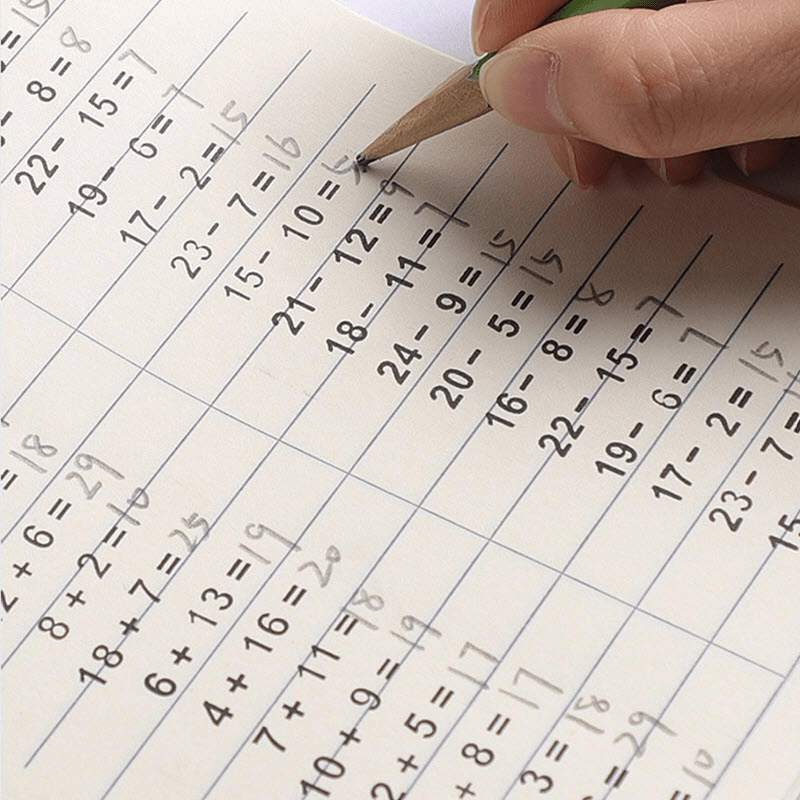 = 15
- 8 = 8
22- 15 = 7
19- 6 = 7
17- 2 = 15
23- 7 = 16
15- 10 = 5
21- 12 = 9
18- 11 = 7
24- 9 = 15
20- 5 = 15
16- 8 = 8
22- 15 = 7
19- 6 = 7
17- 2 = 15
23- 7 =
15-
= 18
2 + 6 = 29
8 + 2 = 10
18 + 7 = 25
6 + 13 = 19
4 + 16 = 20
7 + 11 = 18
10 + 9 = 19
2 + 5 = 17
+ 8 = 17
3 = 18
= 29
= 10